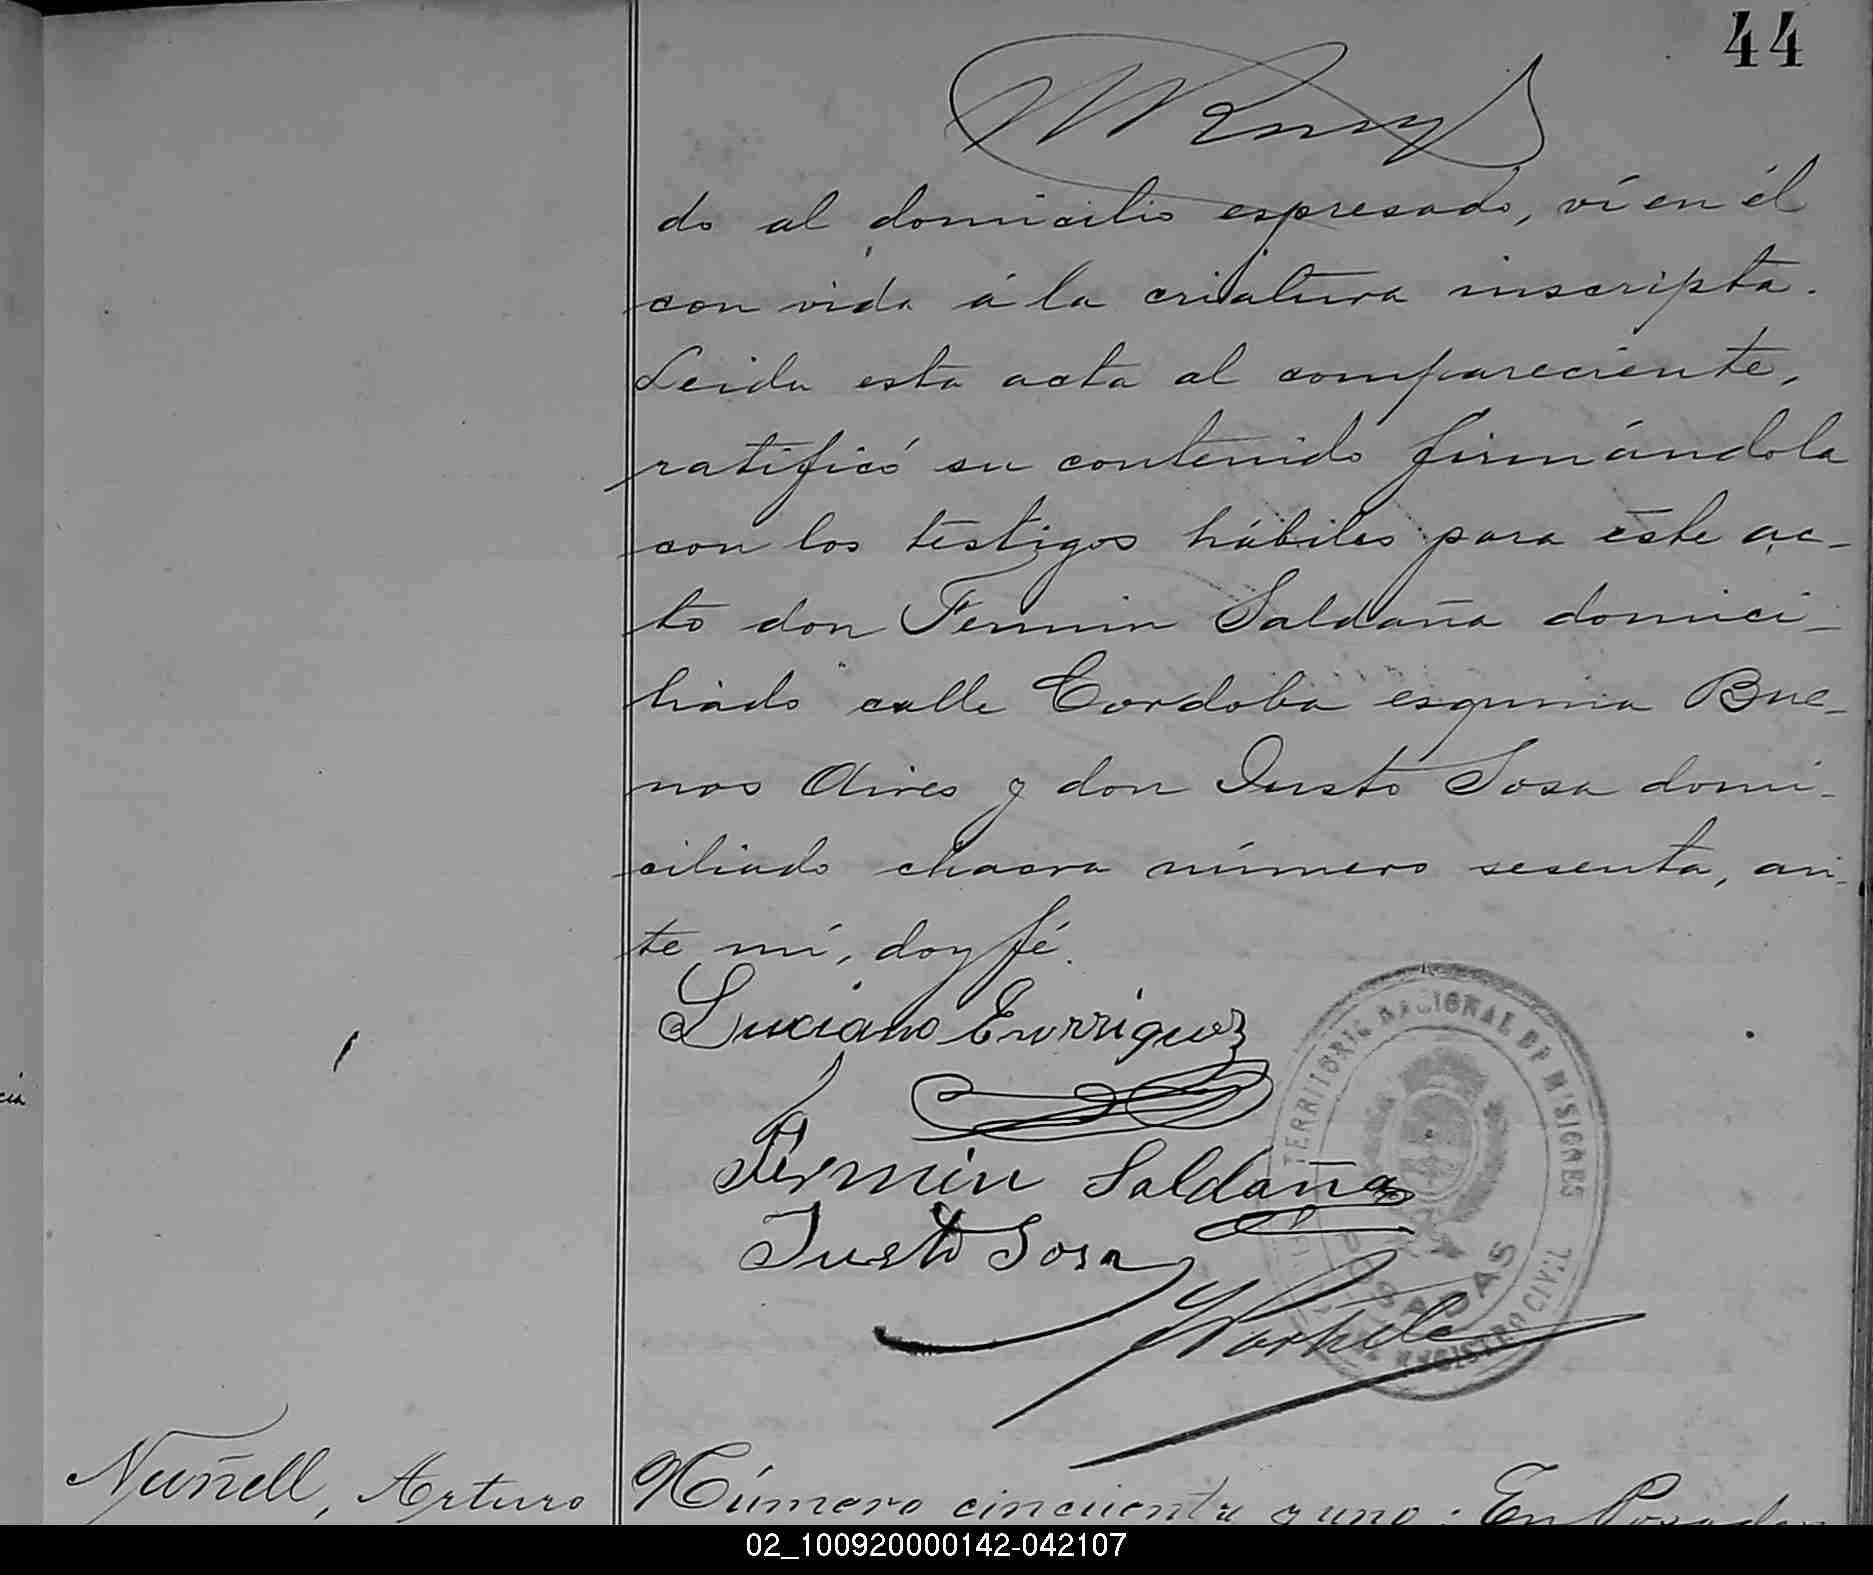 44
do al domicilio espresado, ví en él
con vida á la criatura inscripta.
Leida esta acta al compareciente,
ratificó su contenido firmándola
con los testigos hábiles para este ac-
to don Fermin Saldaña domici-
liado calle Cordoba esquina Bue-
nos Aires y don Justo Sosa domi-
ciliado chacra número sesenta, an-
te mí, doy fé.
Luciano Enrriquez
Fermin Saldaña
Justo Sosa
TERRITORIO NACIONAL DE MISIONES
POSADAS
REGISTRO CIVIL
Nuñell, Arturo
Número cincuenta y uno: En Posadas
02_100920000142-042107